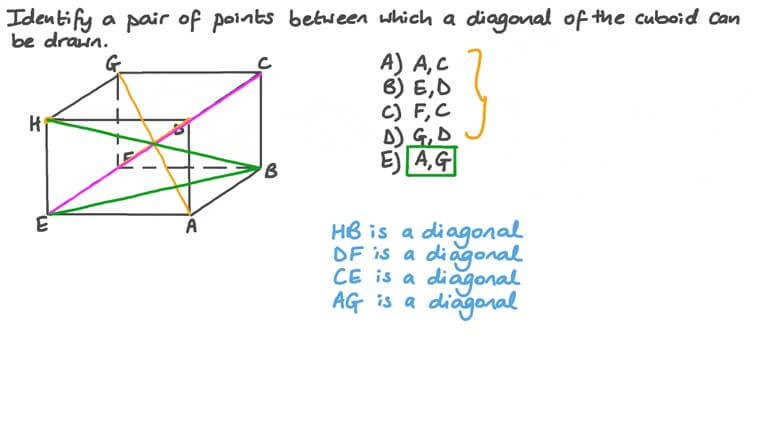 Identify a pair of points between which a diagonal of the cuboid can
be drawn.
G
C
A) A,C
B) E,D
C) F,C
D) G,D
E) A,G
H
D
F
B
E
A
HB is a diagonal
DF is a diagonal
CE is a diagonal
AG is a diagonal